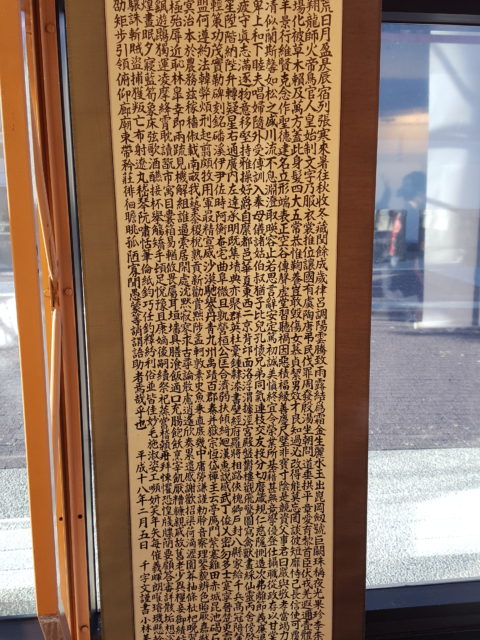 荒日月盈昃辰宿列張寒來暑往秋收冬藏閏餘成歲律呂調陽雲騰致雨露結爲霜金生麗水玉出崑岡劍號巨闕珠稱夜光果珍李
翔龍師火帝鳥官人皇始制文字乃服衣裳推位讓國有虞陶唐弔民伐罪周發殷湯坐朝問道垂拱平章愛育黎首臣伏戎羌遐邇
場化被草木賴及萬方蓋此身髮四大五常恭惟鞠養豈敢毀傷女慕貞烈男效才良知過必改得能莫忘罔談彼短靡恃己長信使可
羊景行維賢克念作聖德建名立形端表正空谷傳聲虛堂習聽禍因惡積福緣善慶尺璧非寶寸陰是競資父事君曰嚴與敬孝當竭
清似蘭斯馨如松之盛川流不息淵澄取映容止若思言辭安定篤初誠美慎終宜令榮業所基籍甚無竟學優登仕攝職從政存以甘棠
卑上和下睦夫唱婦隨外受傅訓入奉母儀諸姑伯叔猶子比兒孔懷兄弟同氣連枝交友投分切磨箴規仁慈隱惻造次弗離節義廉
疲守真志滿逐物意移堅持雅操好爵自縻都邑華夏東西二京背邙面洛浮渭據涇宮殿盤鬱樓觀飛驚圖寫禽獸畫綵仙靈丙舍傍啓
笙陞階納陛弁轉疑星右通廣內左達承明既集墳典亦聚群英杜稾鍾隸漆書壁經府羅將相路俠槐卿戶封八縣家給千兵高冠陪
輕策功茂實勒碑刻銘磻溪伊尹佐時阿衡奄宅曲阜微旦孰營桓公匡合濟弱扶傾綺迴漢惠說感武丁俊乂密勿多士寔寧晉楚更霸
盟何遵約法韓弊煩刑起翦頗牧用軍最精宣威沙漠馳譽丹青九州禹跡百郡秦并嶽宗恒岱禪主云亭鴈門紫塞雞田赤城昆池碣石
冥治本於農務茲稼穡俶載南畝我藝黍稷稅熟貢新勸賞黜陟孟軻敦素史魚秉直庶幾中庸勞謙謹勅聆音察理鑒貌辨色貽厥嘉
極殆辱近恥林皋幸即兩疏見機解組誰逼索居閑處沈默寂寥求古尋論散慮逍遙欣奏累遣慼謝歡招渠荷的歷園莽抽條枇杷晚
飖遊鵾獨運凌摩絳霄耽讀翫市寓目囊箱易輶攸畏屬耳垣牆具膳飡飯適口充腸飽飫烹宰飢厭糟糠親戚故舊老少異糧妾御績
煌晝眠夕寐藍筍象床弦歌酒讌接杯舉觴矯手頓足悅豫且康嫡後嗣續祭祀蒸嘗稽顙再拜悚懼恐惶牋牒簡要顧答審詳骸垢想
驤誅斬賊盜捕獲叛亡布射遼丸嵇琴阮嘯恬筆倫紙鈞巧任釣釋紛利俗並皆佳妙毛施淑姿工顰妍笑年矢每催羲暉朗曜璇璣懸
劭矩步引領俯仰廊廟束帶矜莊徘徊瞻眺孤陋寡聞愚蒙等誚謂語助者焉哉乎也 平成十八年二月五日 千字文謹書小林